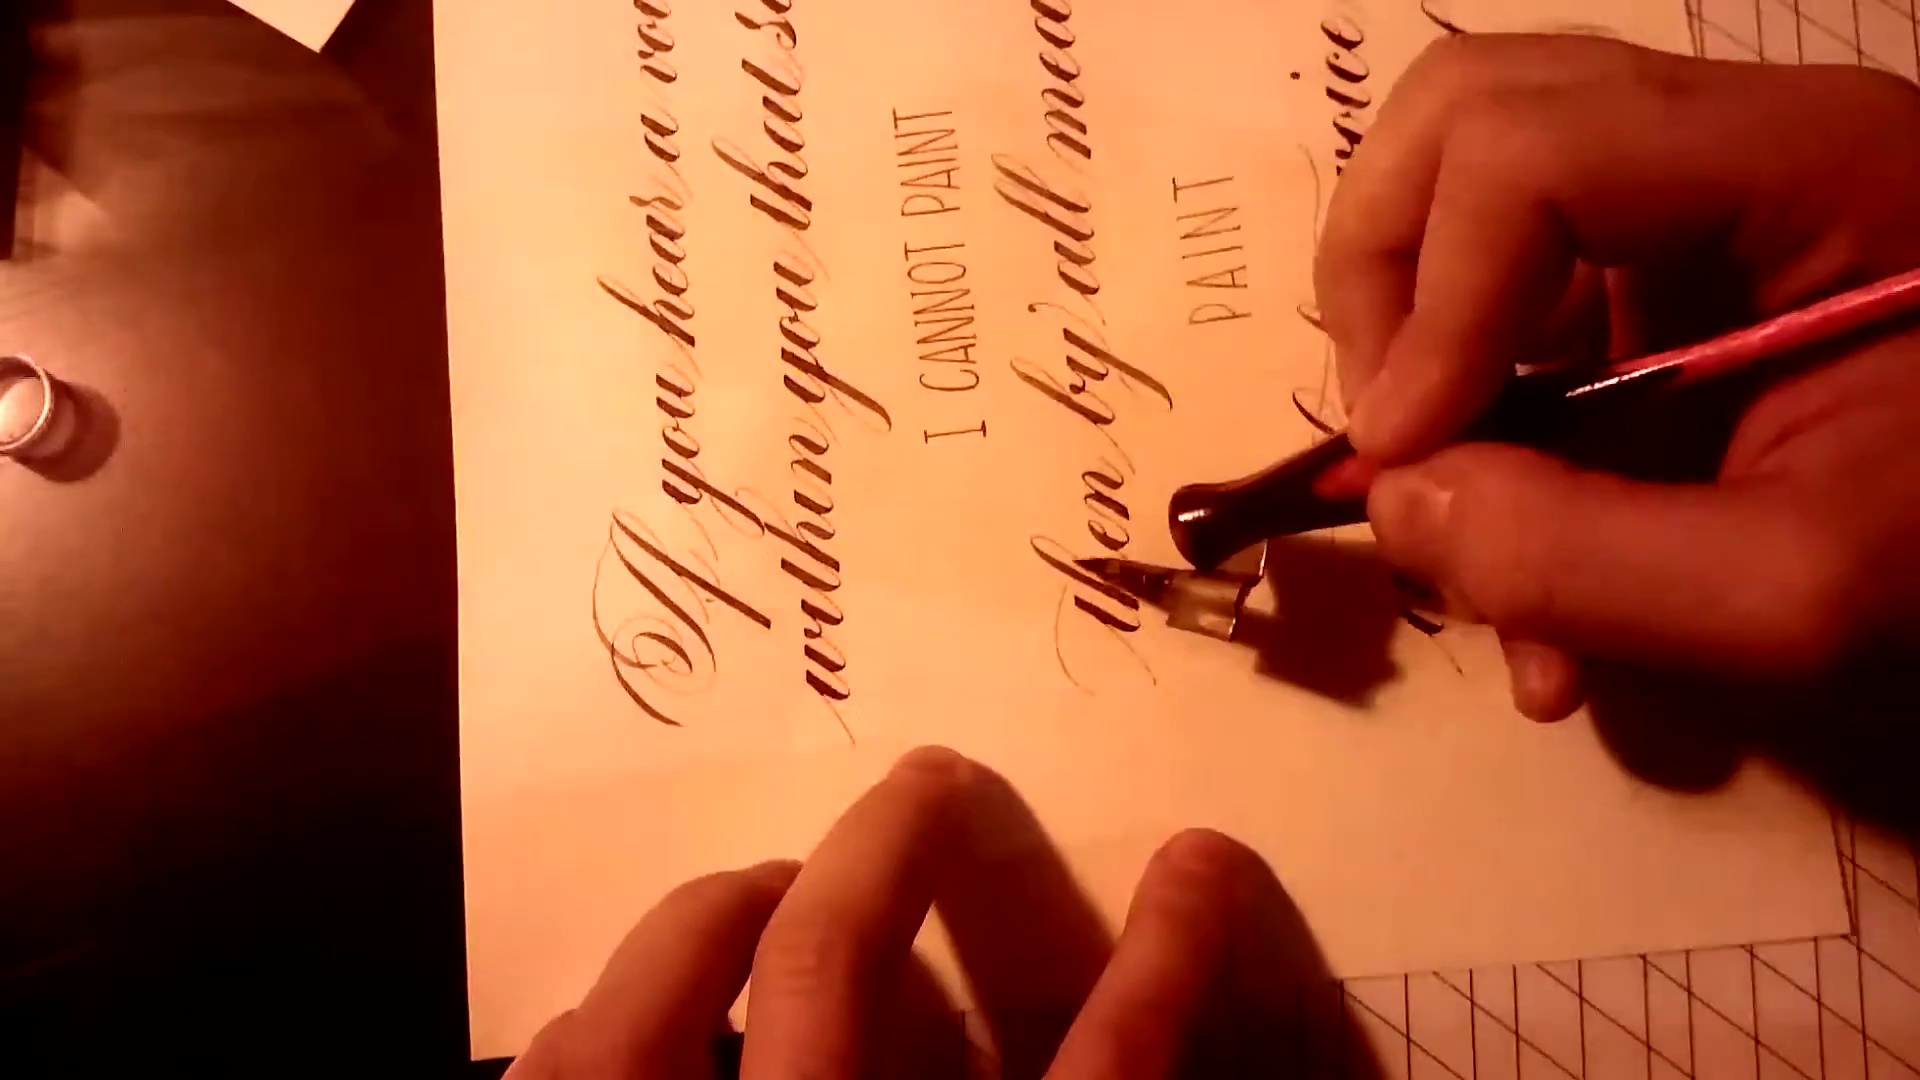 If you hear a
within you that
I CANNOT PAINT
Then by all
PAINT
voice